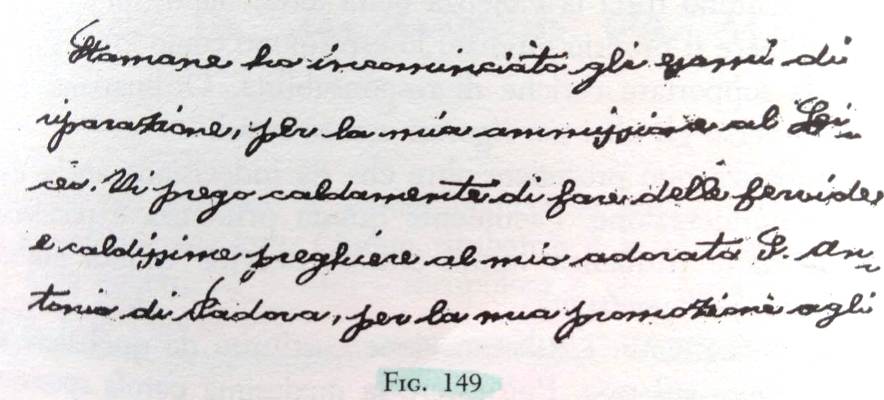 Stamane ho incominciato gli esami di
riparazione, per la mia ammissione al Li=
ceo. Vi prego caldamente di fare delle fervide
e caldissime preghiere al mio adorato S. An=
tonio di Padova, per la mia promozione agli
FIG. 149